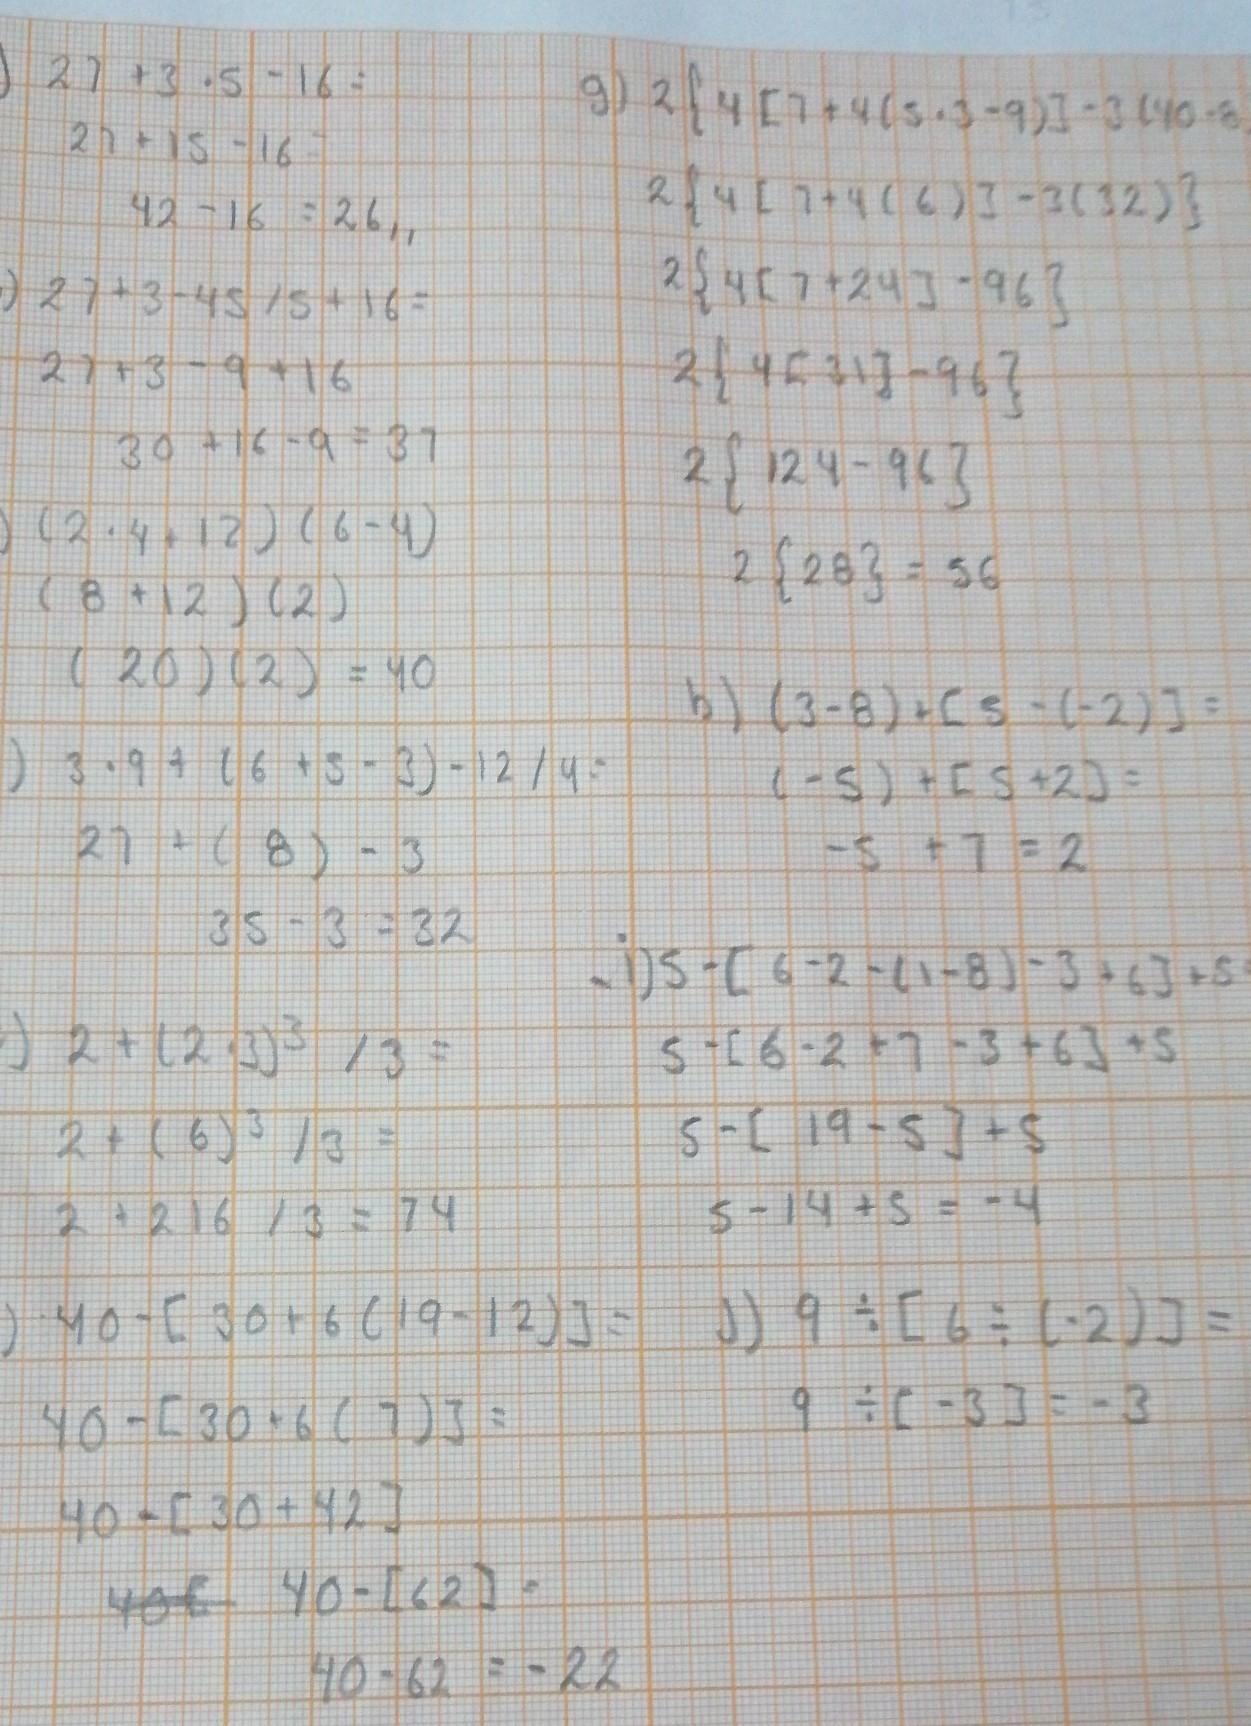 ) 27 + 3 · 5 - 16 =
27 + 15 - 16 =
42 - 16 = 26,,
) 27 + 3 - 45 / 5 + 16 =
27 + 3 - 9 + 16
30 + 16 - 9 = 37
) (2 · 4 + 12) (6 - 4)
(8 + 12) (2)
(20) (2) = 40
) 3 · 9 + (6 + 5 - 3) - 12 / 4 =
27 + (8) - 3
35 - 3 = 32
) 2 + (2·3)³ / 3 =
2 + (6)³ / 3 =
2 + 216 / 3 = 74
) 40 - [30 + 6 (19 - 12)] =
40 - [30 + 6 (7)] =
40 - [30 + 42]
40 - [62] =
40 - 62 = -22
g) 2{4[7+4(5·3-9)]-3(40-8
2{4[7+4(6)]-3(32)}
2{4[7+24]-96}
2{4[31]-96}
2{124-96}
2{28} = 56
h) (3-8)+[5-(-2)] =
(-5)+[5+2] =
-5 + 7 = 2
i) 5-[6-2-(1-8)-3+6]+5
5-[6-2+7-3+6]+5
5-[19-5]+5
5-14+5 = -4
J) 9 ÷ [6 ÷ (-2)] =
9 ÷ [-3] = -3